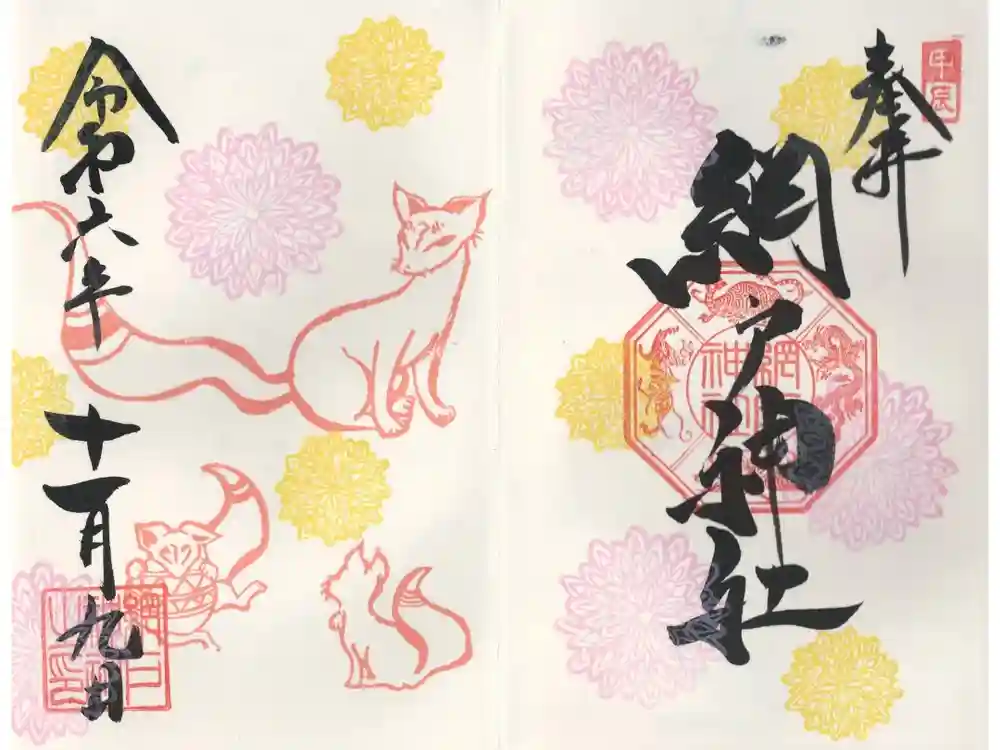 甲辰
奉拝
網戸神社
網戸
神社
令和六年
十一月九日